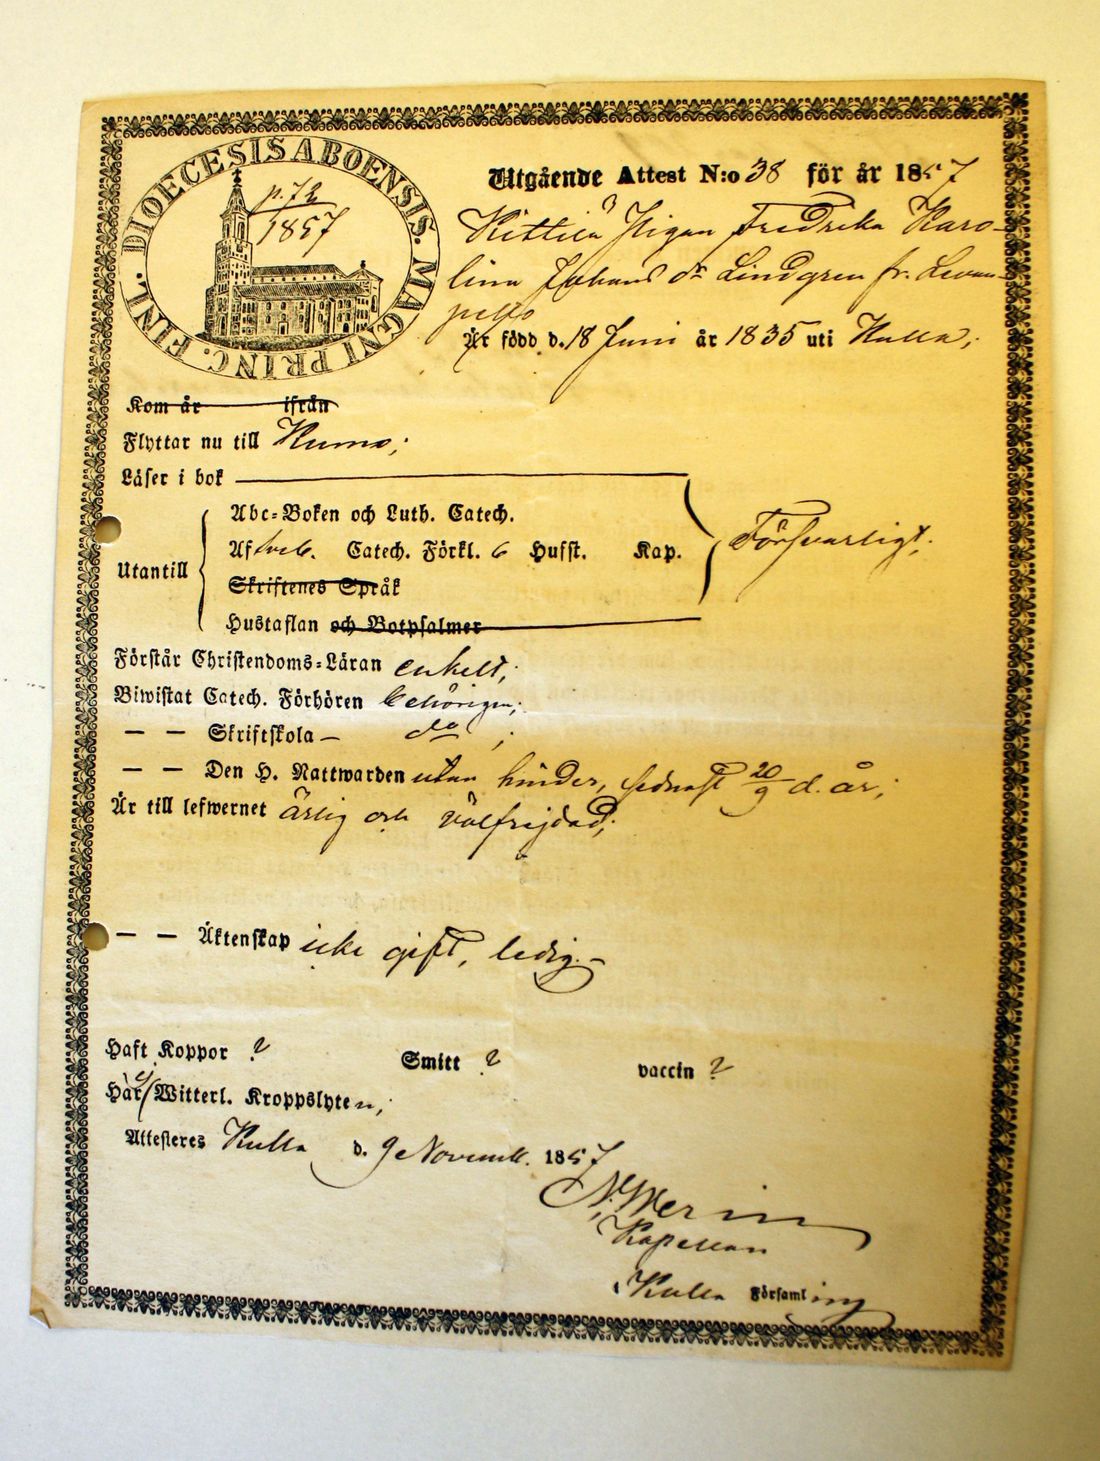 DIOECESIS ABOENSIS. MAGNI PRINC. FINL.
p. 72
1857
Utgående Attest N:o 38 för år 1857
Pigan Fredrika Karo-
lina Johans dr Lindgren fr. Levan-
pelto
Är född d. 18 Juni år 1835 uti Kulla,
Kom år ifrån
Flyttar nu till Kumo;
Läser i bok
Abc-Boken och Luth. Catech.
Af Catech. Förkl. 6 Husst. Kap.
Försvarligt;
Utantill
Skriftenes Språk
Hustaflan och Botpsalmer
Förstår Christendoms-Läran enkelt;
Biwistat Catech. Förhören behörigen;
— — Skriftskola — do;
— — Den H. Nattwarden utan hinder, sednast 20/9 d. år;
Är till lefwernet ärlig och välfrejdad;
— — Äktenskap icke gift, ledig. —
Haft Koppor ? Smitt ? vaccin ?
Har ej Witterl. Kroppslyten;
Attesteras Kulla d. 9 Novemb. 1857
Kapellan
Kulla Församling